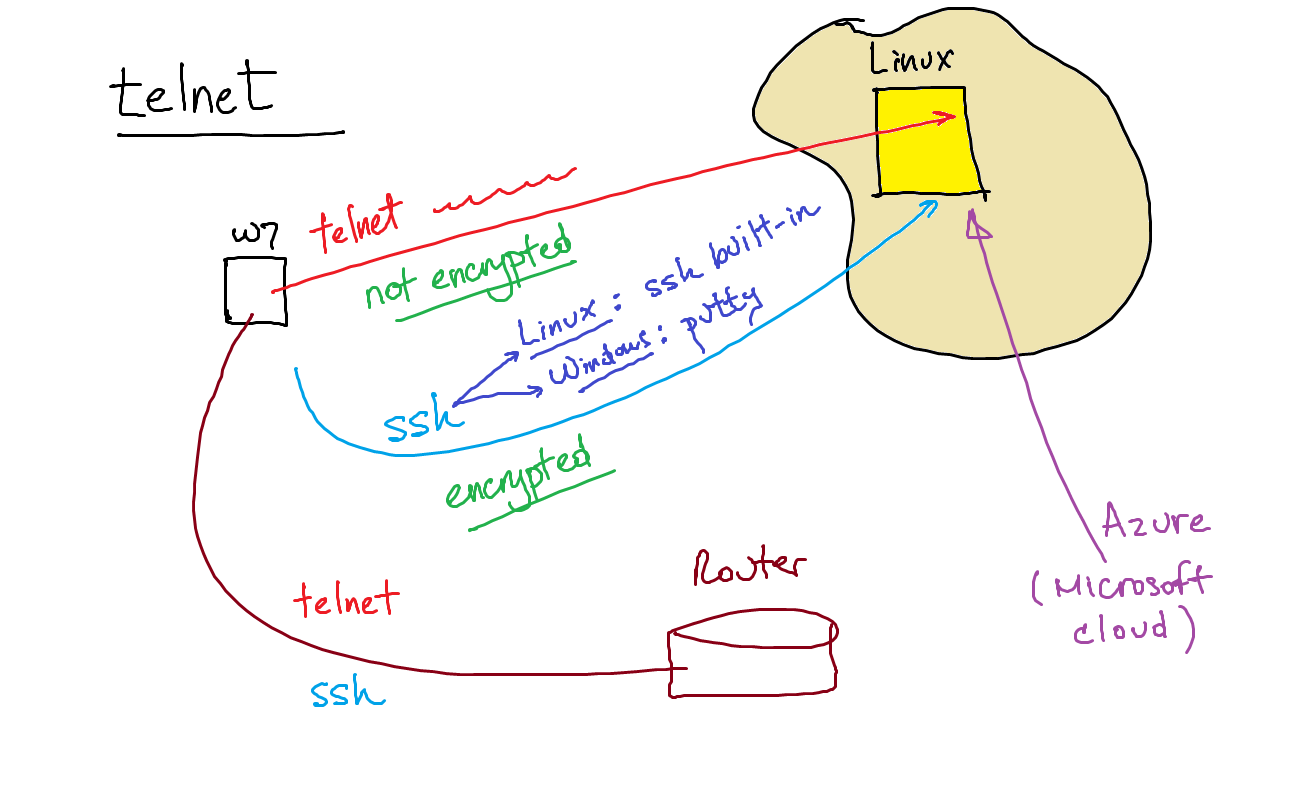 telnet
Linux
W7
telnet
not encrypted
Linux: ssh built-in
Windows: putty
ssh
encrypted
Azure
(Microsoft
cloud)
Router
telnet
ssh